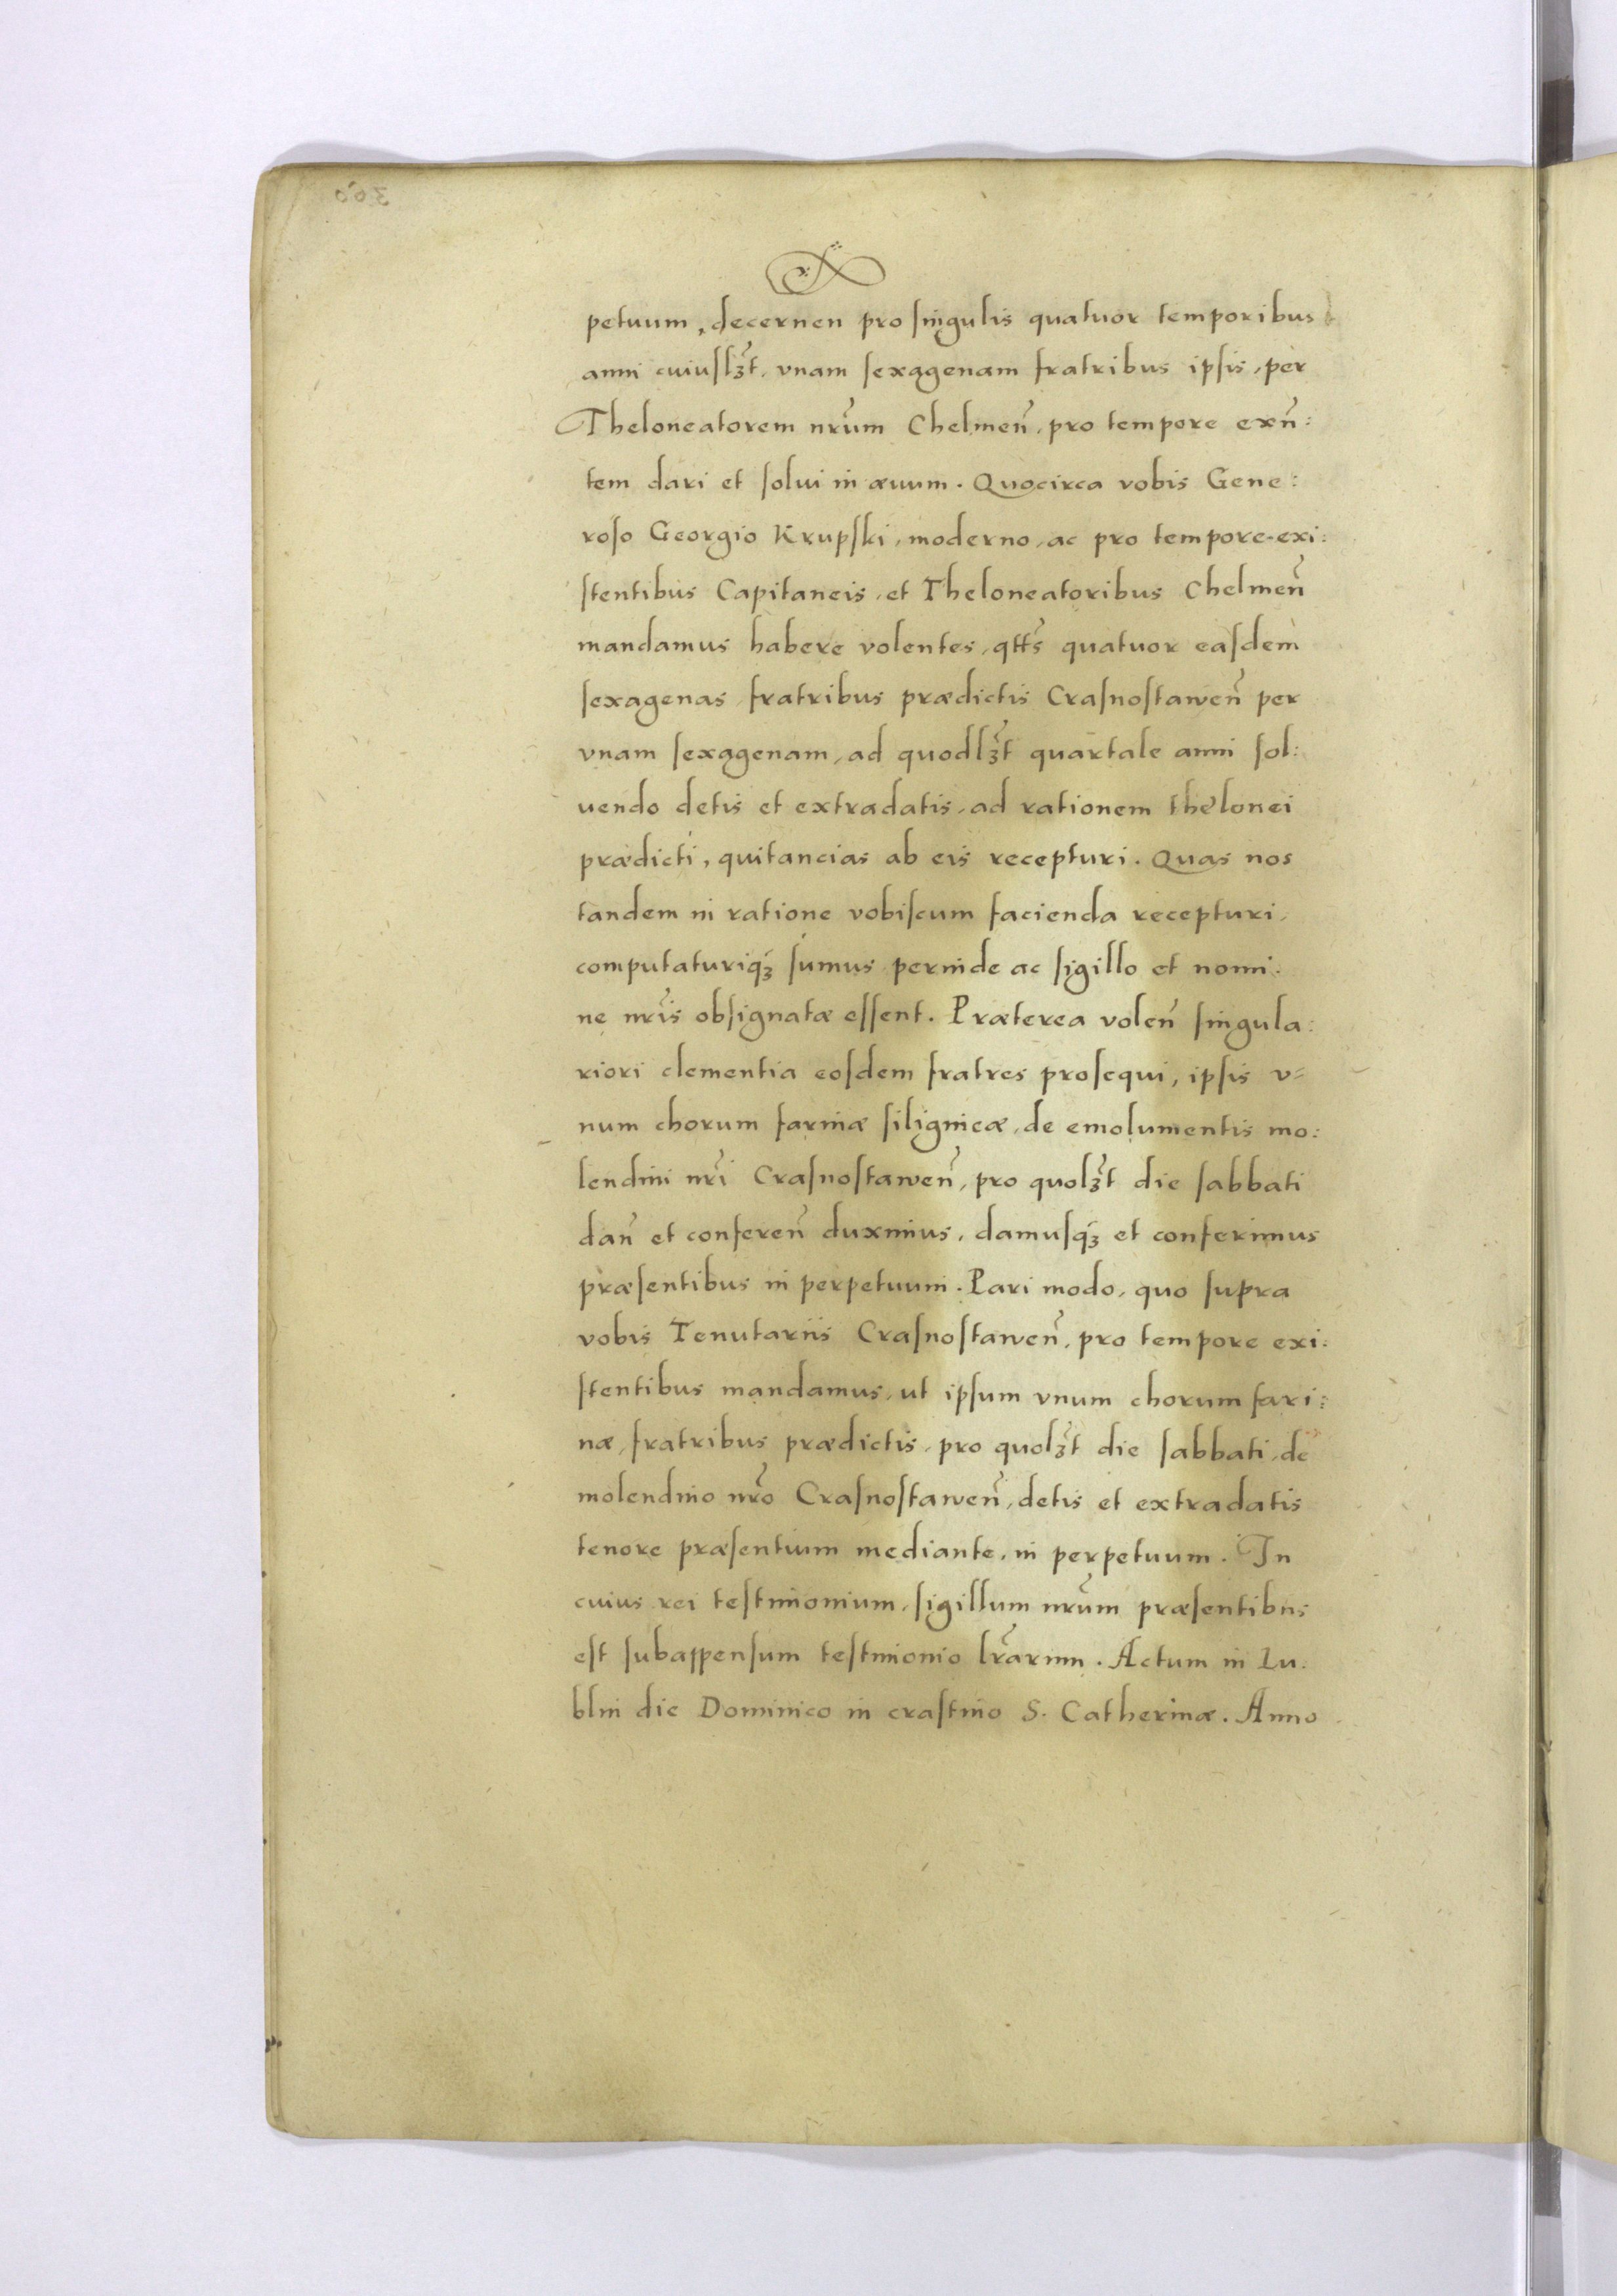 petuum, decernen pro singulis quatuor temporibus
anni cuiuslꝫt, vnam sexagenam fratribus ipsis, per
Theloneatorem nr̃um Chelmen̄, pro tempore exn̄:
tem dari et solui in æuum. Quocirca vobis Gene:
roso Georgio Krupski, moderno, ac pro tempore exi:
stentibus Capitaneis, et Theloneatoribus Chelmen̄
mandamus habere volentes, qtt̃s quatuor easdem
sexagenas fratribus prædictis Crasnostawen̄ per
vnam sexagenam, ad quodlꝫt quartale anni sol:
uendo detis et extradatis, ad rationem thelonei
prædicti, quitancias ab eis recepturi. Quas nos
tandem in ratione vobiscum facienda recepturi,
computaturiqꝫ sumus perinde ac sigillo et nomi:
ne nr̃is obsignatæ essent. Præterea volen̄ singula:
riori clementia eosdem fratres prosequi, ipsis v=
num chorum farinæ siligineæ, de emolumentis mo:
lendini nr̃i Crasnostawen̄, pro quolꝫt die sabbati
dan̄ et conferen̄ duximus, damusqꝫ et conferimus
præsentibus in perpetuum. Pari modo, quo supra
vobis Tenutariis Crasnostawen̄, pro tempore exi:
stentibus mandamus, ut ipsum vnum chorum fari:
næ, fratribus prædictis, pro quolꝫt die sabbati, de
molendino nr̃o Crasnostawen̄, detis et extradatis
tenore præsentium mediante, in perpetuum. In
cuius rei testimonium, sigillum nr̃um præsentibus
est subappensum testimonio lr̃arum. Actum in Lu:
blin die Dominico in crastino S. Catherinæ. Anno